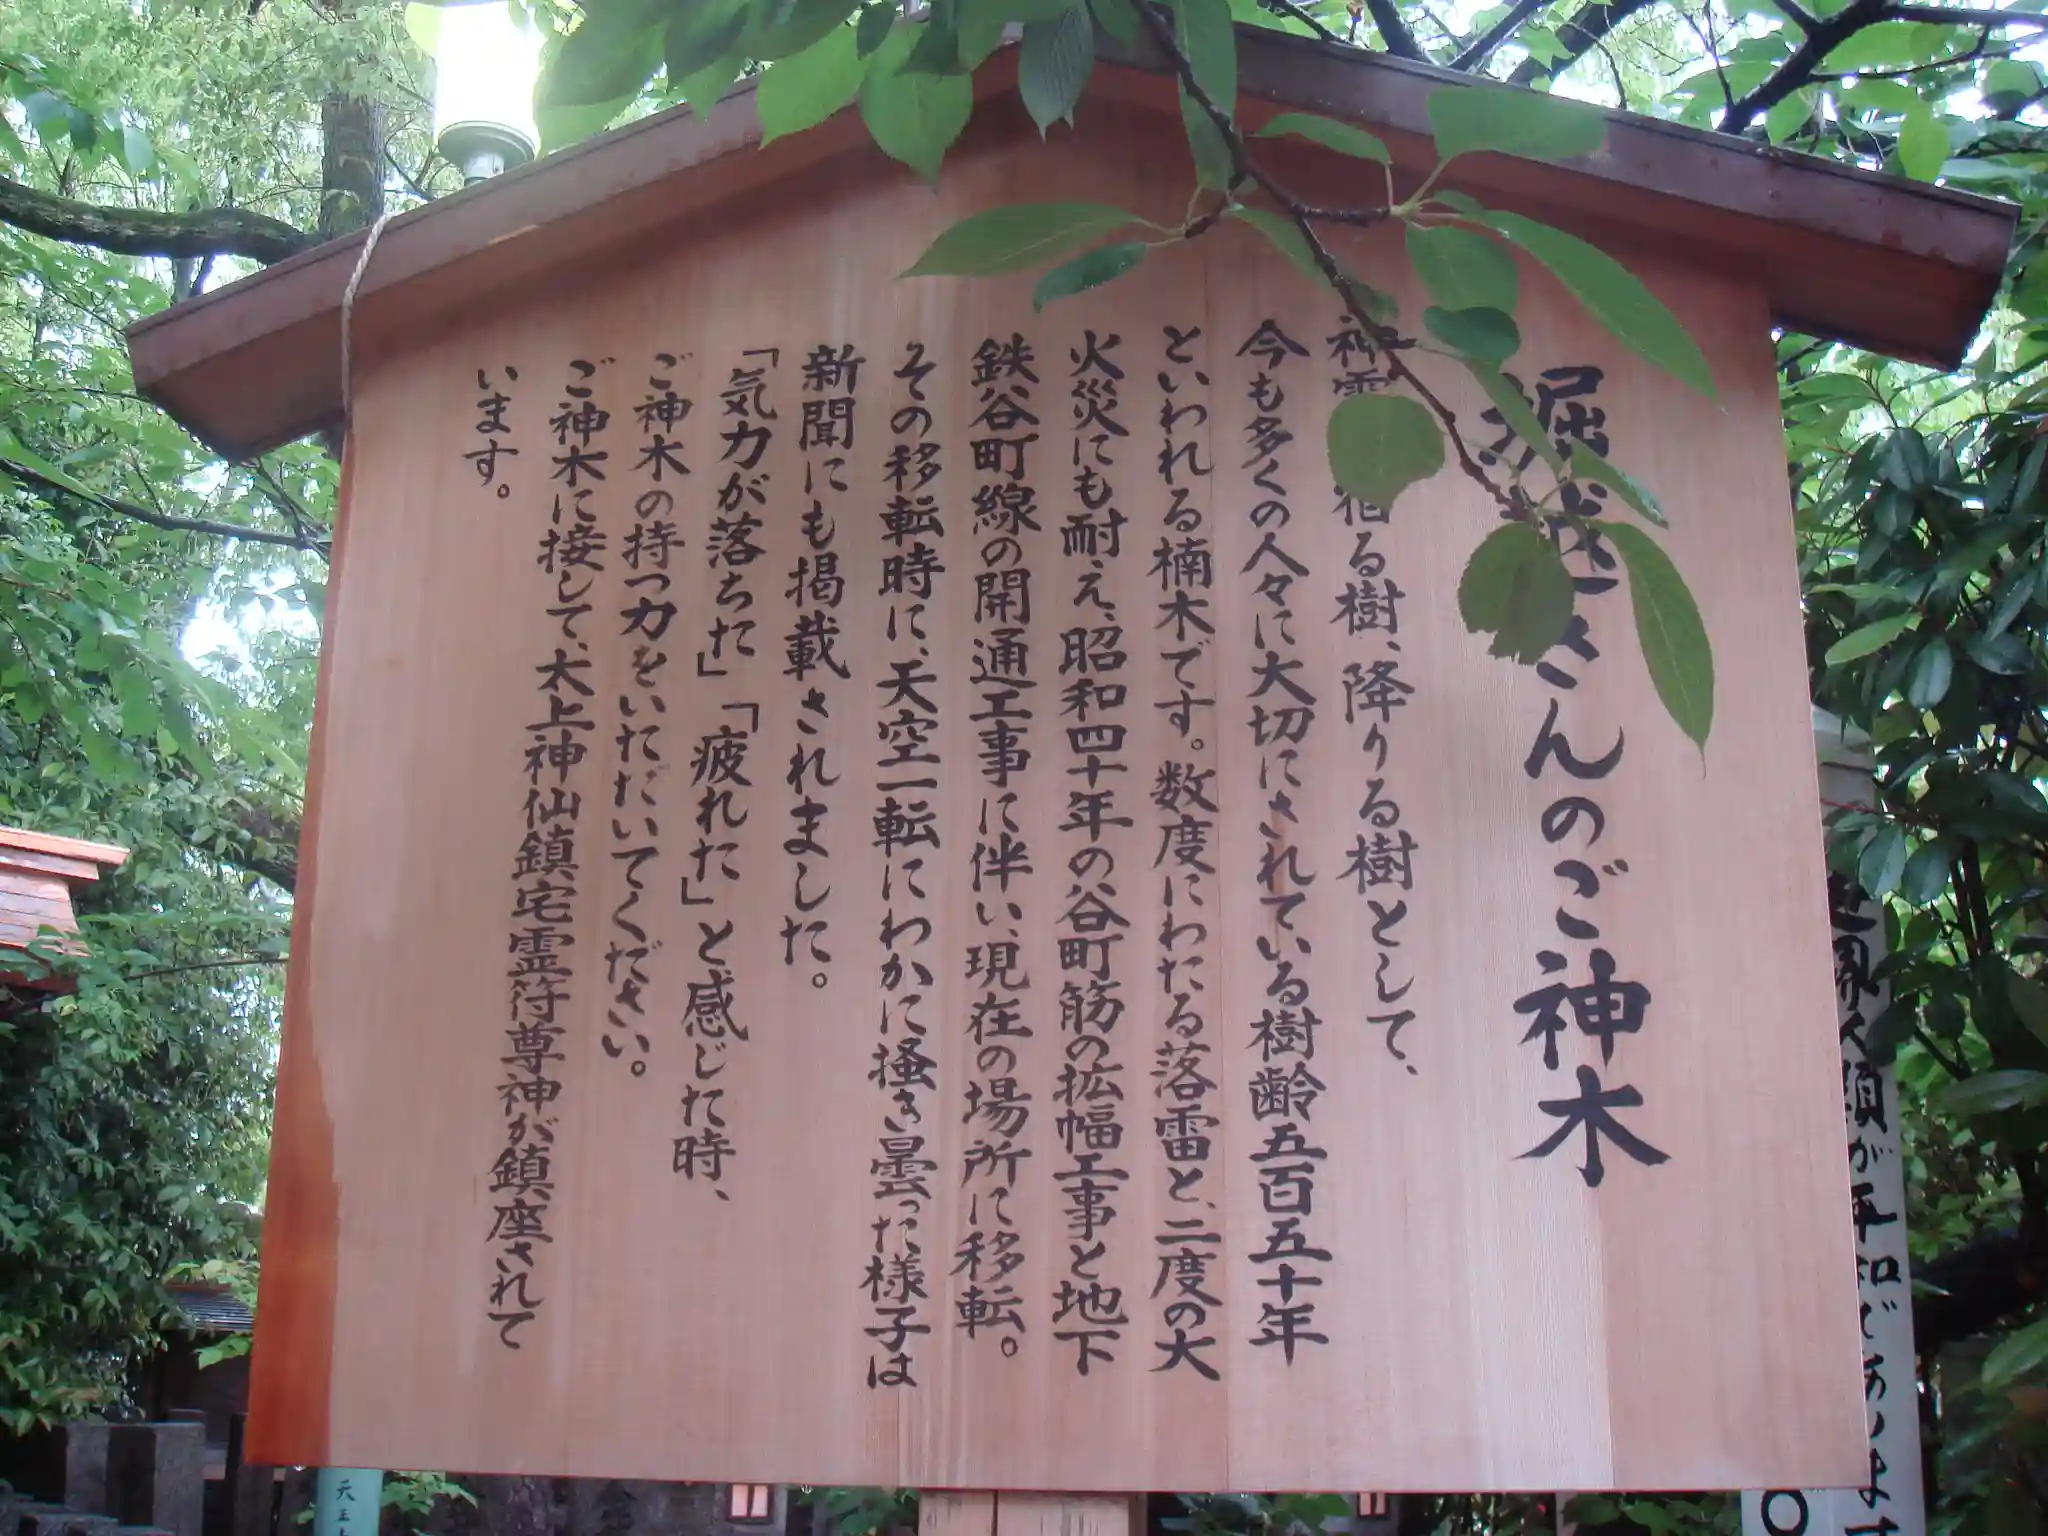 堀越さんのご神木
神霊 宿る樹、降りる樹として、
今も多くの人々に大切にされている樹齢五百五十年
といわれる楠木です。数度にわたる落雷と、二度の大
火災にも耐え、昭和四十年の谷町筋の拡幅工事と地下
鉄谷町線の開通工事に伴い、現在の場所に移転。
その移転時に、天空一転にわかに掻き曇った様子は
新聞にも掲載されました。
「気力が落ちた」「疲れた」と感じた時、
ご神木の持つ力をいただいてください。
ご神木に接して、太上神仙鎮宅霊符尊神が鎮座されて
います。
人類が平和でありま
天王